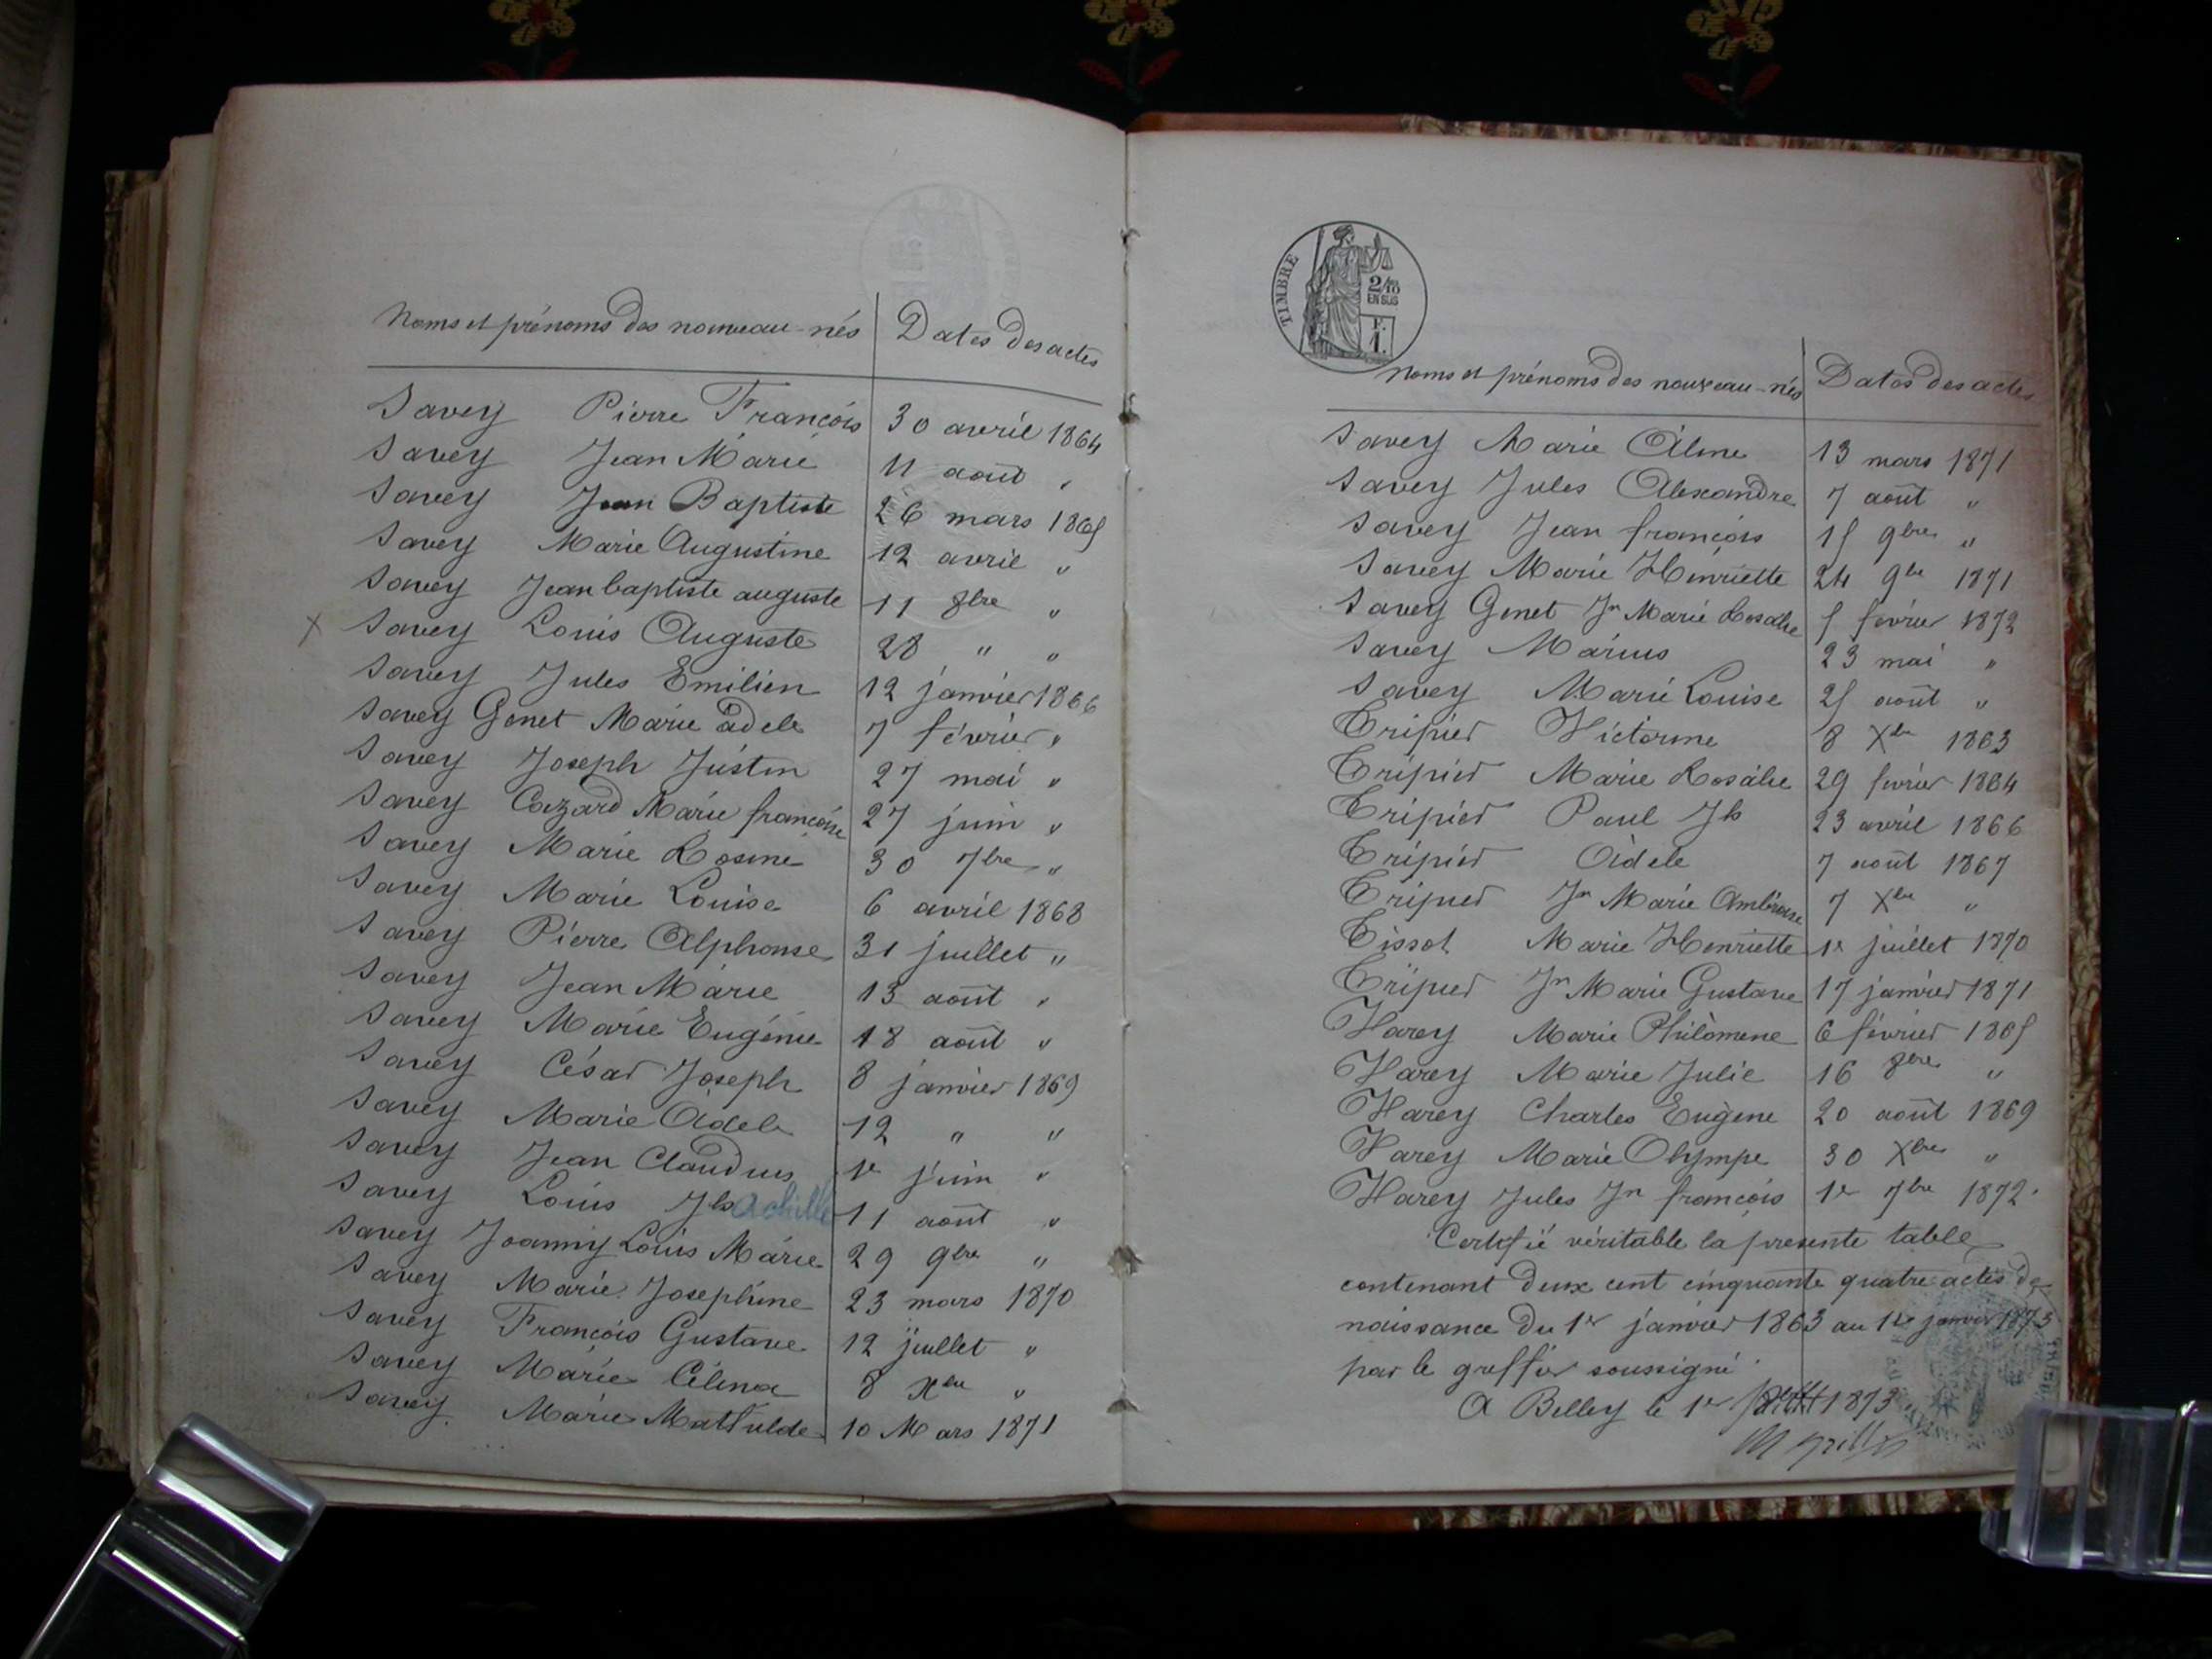 Noms et prénoms des nouveau-nés | Dates des actes
Savey Pierre François | 30 avril 1864
Savey Jean Marie | 11 août "
Savey Jean Baptiste | 26 mars 1865
Savey Marie Augustine | 12 avril "
Savey Jean baptiste auguste | 11 8bre "
X Savey Louis Auguste | 28 " "
Savey Jules Emilien | 12 janvier 1866
Savey Genet Marie adele | 7 février "
Savey Joseph Justin | 27 mai "
Savey Cazard Marie françoise | 27 juin "
Savey Marie Rosine | 30 7bre "
Savey Marie Louise | 6 avril 1868
Savey Pierre Alphonse | 31 juillet "
Savey Jean Marie | 13 août "
Savey Marie Eugénie | 18 août "
Savey César Joseph | 8 janvier 1869
Savey Marie Adele | 12 " "
Savey Jean Claudius | 1er juin "
Savey Louis Jh Achille | 11 août "
Savey Joanny Louis Marie | 29 9bre "
Savey Marie Josephine | 23 mars 1870
Savey François Gustave | 12 juillet "
Savey Marie Célina | 8 Xbre "
Savey Marie Mathilde | 10 Mars 1871
TIMBRE
2/10
EN SUS
F.
1.
Noms et prénoms des nouveau-nés | Dates des actes
Savey Marie Aline | 13 mars 1871
Savey Jules Alexandre | 7 août "
Savey Jean françois | 15 9bre "
Savey Marie Henriette | 24 9bre 1871
Savey Genet Jn Marie Rosalie | 5 février 1872
Savey Marius | 23 mai "
Savey Marie Louise | 25 août "
Tripier Victorine | 8 Xbre 1863
Tripier Marie Rosalie | 29 février 1864
Tripier Paul Jh | 23 avril 1866
Tripier Adele | 7 août 1867
Tripier Jn Marie Ambroise | 7 Xbre "
Tissot Marie Henriette | 1er juillet 1870
Tripier Jn Marie Gustave | 17 janvier 1871
Varey Marie Philomene | 6 février 1865
Varey Marie Julie | 16 8bre "
Varey Charles Eugène | 20 août 1869
Varey Marie Olympe | 30 Xbre "
Varey Jules Jn françois | 1er 7bre 1872.
Certifié véritable la presente table
contenant deux cent cinquante quatre actes de
naissance du 1er janvier 1863 au 1er janvier 1873
par le greffier soussigné.
A Belley le 1er 1873